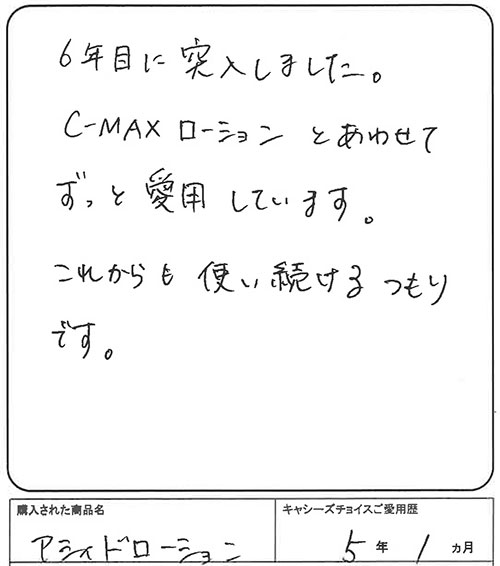 6年目に突入しました。
C-MAXローションとあわせて
ずっと愛用しています。
これからも使い続けるつもり
です。
購入された商品名
キャシーズチョイスご愛用歴
アシィドローション
5年1ヵ月